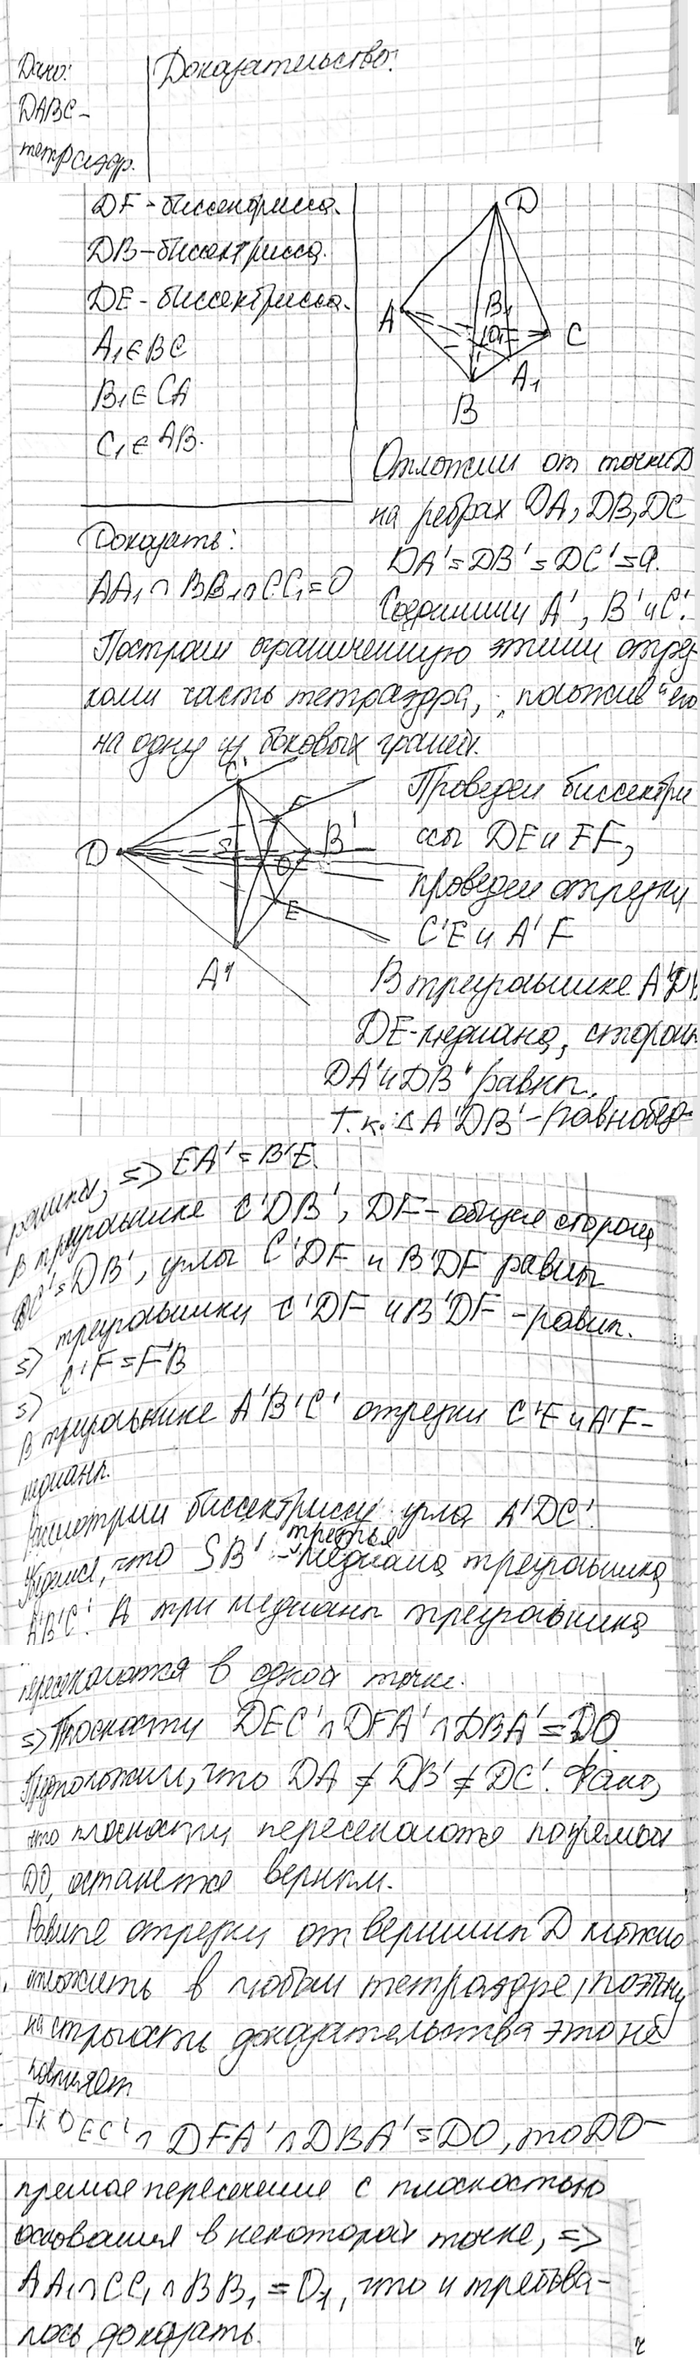 Дано:
Доказательство:
DABC -
тетраэдр.
DF - биссектрисса.
DB - биссектрисса.
DE - биссектрисса.
A₁ ∈ BC
B₁ ∈ CA
C₁ ∈ AB.
D
A
B₁
O₁
C
A₁
B
Отложим от точки D
на ребрах DA, DB, DC
DA' = DB' = DC' = a.
Соединим A', B' и C'.
Доказать:
AA₁ ∩ BB₁ ∩ CC₁ = O
Построим ограниченную этими отрез-
ками часть тетраэдра, положив его
на одну из боковых граней.
C'
F
D
S
O
B'
E
A'
Проведем биссектри
ссы DE и EF,
проведем отрезки
C'E и A'F
В треугольнике A'DB'
DE - медиана, стороны
DA' и DB' равны.
Т.к. △ A'DB' - равнобед-
ренный, => EA' = B'E.
В треугольнике C'DB', DF - общая сторона
DC' = DB', углы C'DF и B'DF равны
=> треугольники C'DF и B'DF - равны.
=> C'F = F'B
В треугольнике A'B'C' отрезки C'E и A'F -
медианы.
Рассмотрим биссектрису угла A'DC'.
что SB' - третья медиана треугольника
A'B'C'. А три медианы треугольника
пересекаются в одной точке.
=> Плоскости DEC' ∩ DFA' ∩ DBA' = DO
Предположим, что DA ≠ DB' ≠ DC'. Факт,
что плоскости пересекаются по прямой
DO, останется верным.
Равные отрезки от вершины D можно
отложить в любом тетраэдре, поэтому
на строгость доказательства это не
повлияет
Т.к DEC' ∩ DFA' ∩ DBA' = DO, то DO -
прямая пересечение с плоскостью
основания в некоторой точке, =>
AA₁ ∩ CC₁ ∩ BB₁ = O₁, что и требова-
лось доказать.